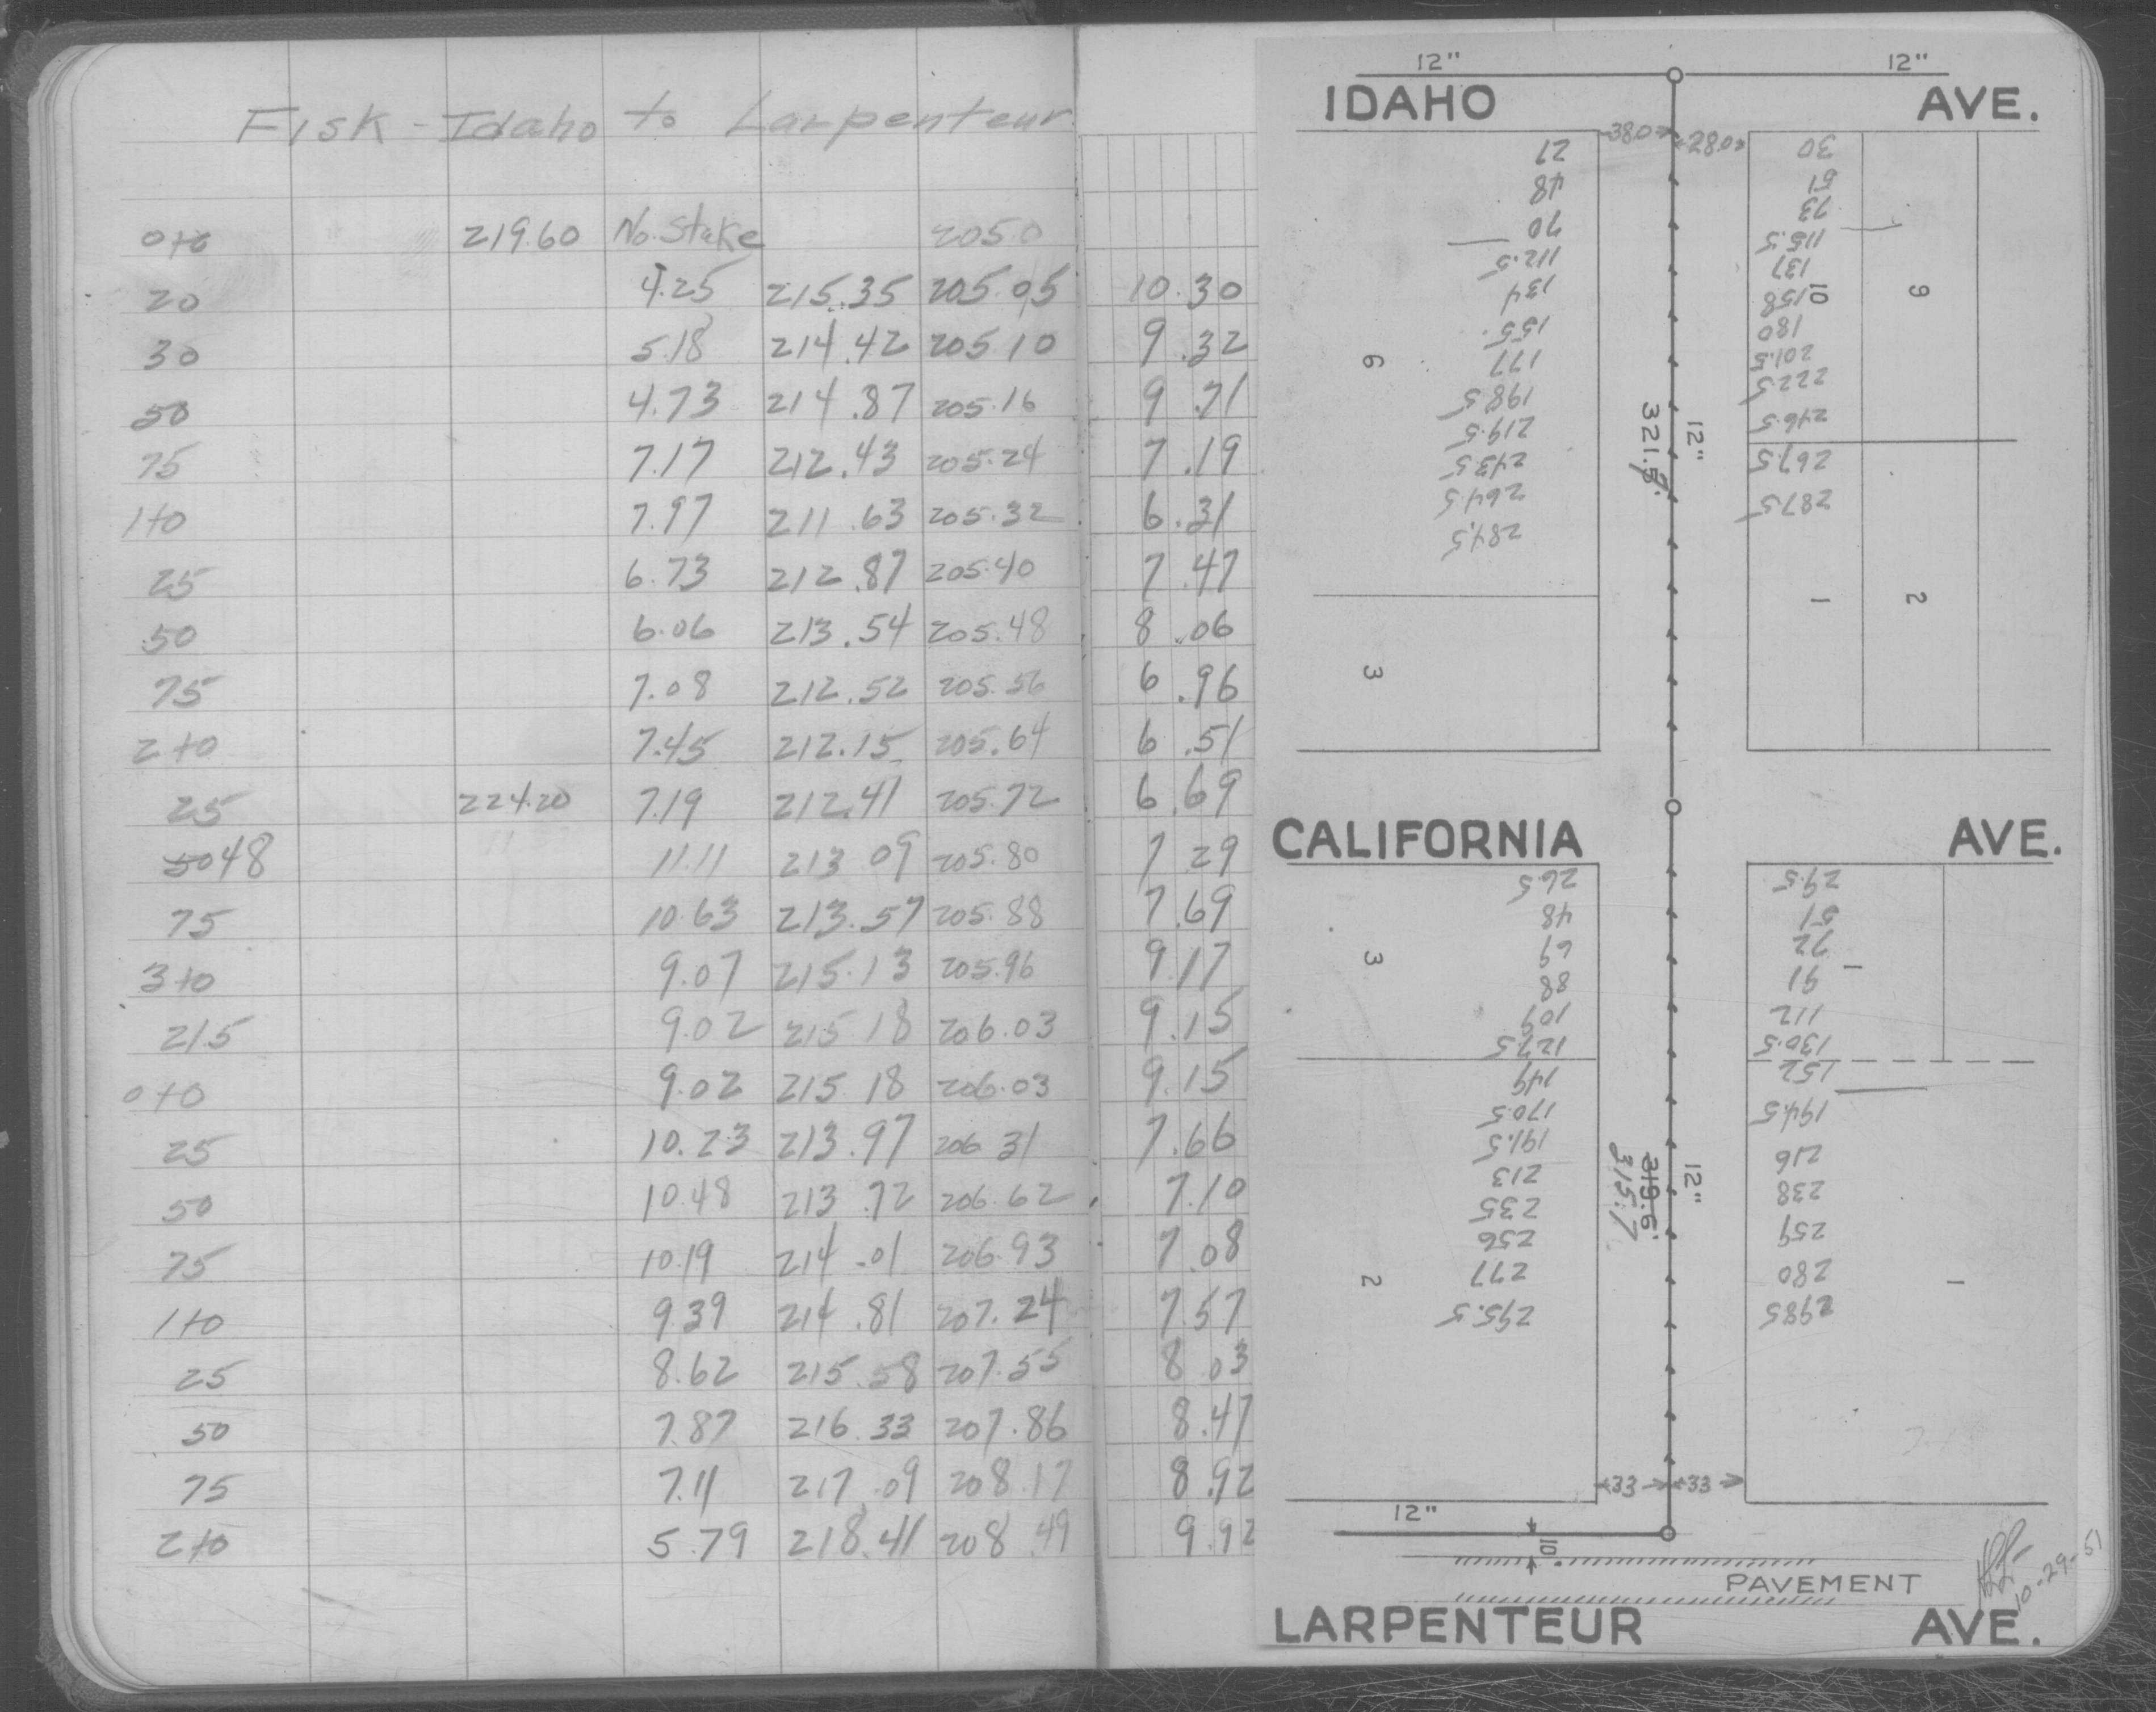 Fisk - Idaho to Larpenteur
0+0 219.60 No. Stake 205.0
20 4.25 215.35 205.05 10.30
30 5.18 214.42 205.10 9.32
50 4.73 214.87 205.16 9.71
75 7.17 212.43 205.24 7.19
1+0 7.97 211.63 205.32 6.31
25 6.73 212.87 205.40 7.47
50 6.06 213.54 205.48 8.06
75 7.08 212.52 205.56 6.96
2+0 7.45 212.15 205.64 6.51
25 224.20 7.19 212.41 205.72 6.69
50 48 11.11 213.09 205.80 7.29
75 10.63 213.57 205.88 7.69
3+0 9.07 215.13 205.96 9.17
21.5 9.02 215.18 206.03 9.15
0+0 9.02 215.18 206.03 9.15
25 10.23 213.97 206.31 7.66
50 10.48 213.72 206.62 7.10
75 10.19 214.01 206.93 7.08
1+0 9.39 214.81 207.24 7.57
25 8.62 215.58 207.55 8.03
50 7.87 216.33 207.86 8.47
75 7.11 217.09 208.17 8.92
2+0 5.79 218.41 208.49 9.92
12" 12"
IDAHO AVE.
27 30
48 51
70 73
112.5 115.5
134 137
155 158
177 180
198.5 201.5
219.5 222.5
243.5 246.5
264.5 267.5
284.5 287.5
6 10 9
12"
1 2
3
CALIFORNIA AVE.
26.5 29.5
48 51
69 72
88 91
109 112
127.5 130.5
149 152
170.5
191.5 194.5
213 216
235 238
256 259
277 280
295.5 298.5
3 1
319.6'
315.7
12"
2 1
33 33
12"
10'
PAVEMENT
10-29-51
LARPENTEUR AVE.